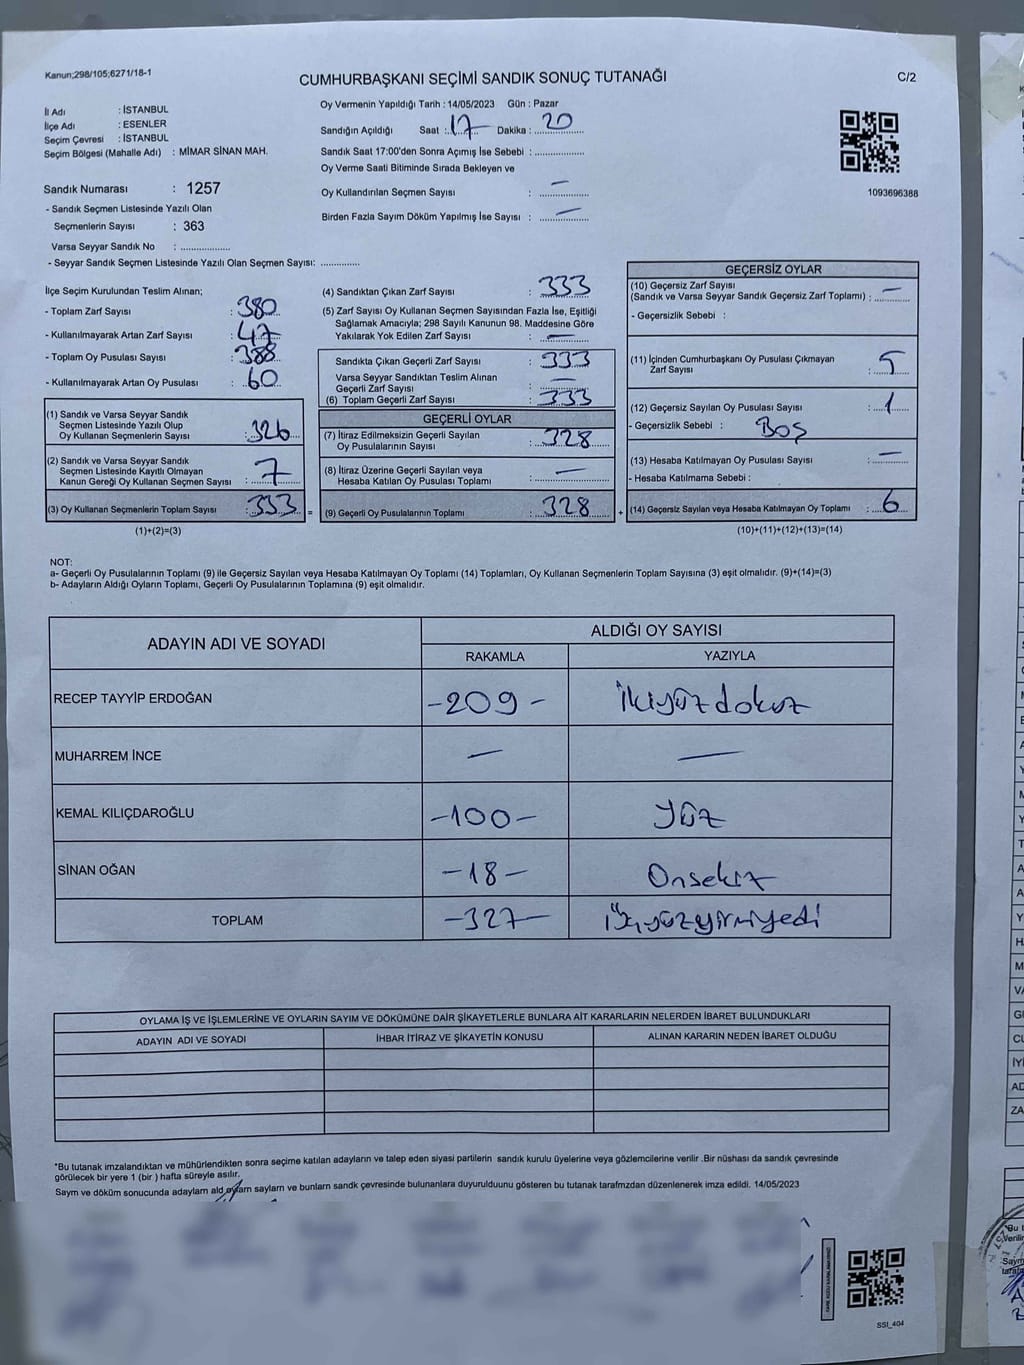 Kanun;298/105;6271/18-1
CUMHURBAŞKANI SEÇİMİ SANDIK SONUÇ TUTANAĞI
C/2
İl Adı : İSTANBUL
İlçe Adı : ESENLER
Seçim Çevresi : İSTANBUL
Seçim Bölgesi (Mahalle Adı) : MİMAR SİNAN MAH.
Oy Vermenin Yapıldığı Tarih : 14/05/2023 Gün : Pazar
Sandığın Açıldığı Saat : 17 Dakika : 20
Sandık Saat 17:00'den Sonra Açımış İse Sebebi : ................
Oy Verme Saati Bitiminde Sırada Bekleyen ve
Oy Kullandırılan Seçmen Sayısı : —
Birden Fazla Sayım Döküm Yapılmış İse Sayısı : —
1093696388
Sandık Numarası : 1257
- Sandık Seçmen Listesinde Yazılı Olan
Seçmenlerin Sayısı : 363
Varsa Seyyar Sandık No : ................
- Seyyar Sandık Seçmen Listesinde Yazılı Olan Seçmen Sayısı: ............
İlçe Seçim Kurulundan Teslim Alınan;
- Toplam Zarf Sayısı : 380
- Kullanılmayarak Artan Zarf Sayısı : 47
- Toplam Oy Pusulası Sayısı : 388
- Kullanılmayarak Artan Oy Pusulası : 60
(1) Sandık ve Varsa Seyyar Sandık
Seçmen Listesinde Yazılı Olup
Oy Kullanan Seçmenlerin Sayısı : 326
(2) Sandık ve Varsa Seyyar Sandık
Seçmen Listesinde Kayıtlı Olmayan
Kanun Gereği Oy Kullanan Seçmen Sayısı : 7
(3) Oy Kullanan Seçmenlerin Toplam Sayısı : 333
(1)+(2)=(3)
(4) Sandıktan Çıkan Zarf Sayısı : 333
(5) Zarf Sayısı Oy Kullanan Seçmen Sayısından Fazla İse, Eşitliği
Sağlamak Amacıyla; 298 Sayılı Kanunun 98. Maddesine Göre
Yakılarak Yok Edilen Zarf Sayısı : —
Sandıkta Çıkan Geçerli Zarf Sayısı : 333
Varsa Seyyar Sandıktan Teslim Alınan
Geçerli Zarf Sayısı : —
(6) Toplam Geçerli Zarf Sayısı : 333
GEÇERLİ OYLAR
(7) İtiraz Edilmeksizin Geçerli Sayılan
Oy Pusulalarının Sayısı : 328
(8) İtiraz Üzerine Geçerli Sayılan veya
Hesaba Katılan Oy Pusulası Toplamı : —
= (9) Geçerli Oy Pusulalarının Toplamı : 328
GEÇERSİZ OYLAR
(10) Geçersiz Zarf Sayısı
(Sandık ve Varsa Seyyar Sandık Geçersiz Zarf Toplamı) : —
- Geçersizlik Sebebi :
(11) İçinden Cumhurbaşkanı Oy Pusulası Çıkmayan
Zarf Sayısı : 5
(12) Geçersiz Sayılan Oy Pusulası Sayısı : 1
- Geçersizlik Sebebi : Boş
(13) Hesaba Katılmayan Oy Pusulası Sayısı : —
- Hesaba Katılmama Sebebi :
+ (14) Geçersiz Sayılan veya Hesaba Katılmayan Oy Toplamı : 6
(10)+(11)+(12)+(13)=(14)
NOT:
a- Geçerli Oy Pusulalarının Toplamı (9) ile Geçersiz Sayılan veya Hesaba Katılmayan Oy Toplamı (14) Toplamları, Oy Kullanan Seçmenlerin Toplam Sayısına (3) eşit olmalıdır. (9)+(14)=(3)
b- Adayların Aldığı Oyların Toplamı, Geçerli Oy Pusulalarının Toplamına (9) eşit olmalıdır.
ADAYIN ADI VE SOYADI
ALDIĞI OY SAYISI
RAKAMLA YAZIYLA
RECEP TAYYİP ERDOĞAN -209- İkiyüzdokuz
MUHARREM İNCE — —
KEMAL KILIÇDAROĞLU -100- Yüz
SİNAN OĞAN -18- Onsekiz
TOPLAM -327- Üçyüzyirmiyedi
OYLAMA İŞ VE İŞLEMLERİNE VE OYLARIN SAYIM VE DÖKÜMÜNE DAİR ŞİKAYETLERLE BUNLARA AİT KARARLARIN NELERDEN İBARET BULUNDUKLARI
ADAYIN ADI VE SOYADI İHBAR İTİRAZ VE ŞİKAYETİN KONUSU ALINAN KARARIN NEDEN İBARET OLDUĞU
*Bu tutanak imzalandıktan ve mühürlendikten sonra seçime katılan adayların ve talep eden siyasi partilerin sandık kurulu üyelerine veya gözlemcilerine verilir .Bir nüshası da sandık çevresinde
görülecek bir yere 1 (bir ) hafta süreyle asılır.
Sayım ve döküm sonucunda adayların ald oyların sayıların ve bunların sandk çevresinde bulunanlara duyurulduunu gösteren bu tutanak tarafımzdan düzenlenerek imza edildi. 14/05/2023
SSİ_404